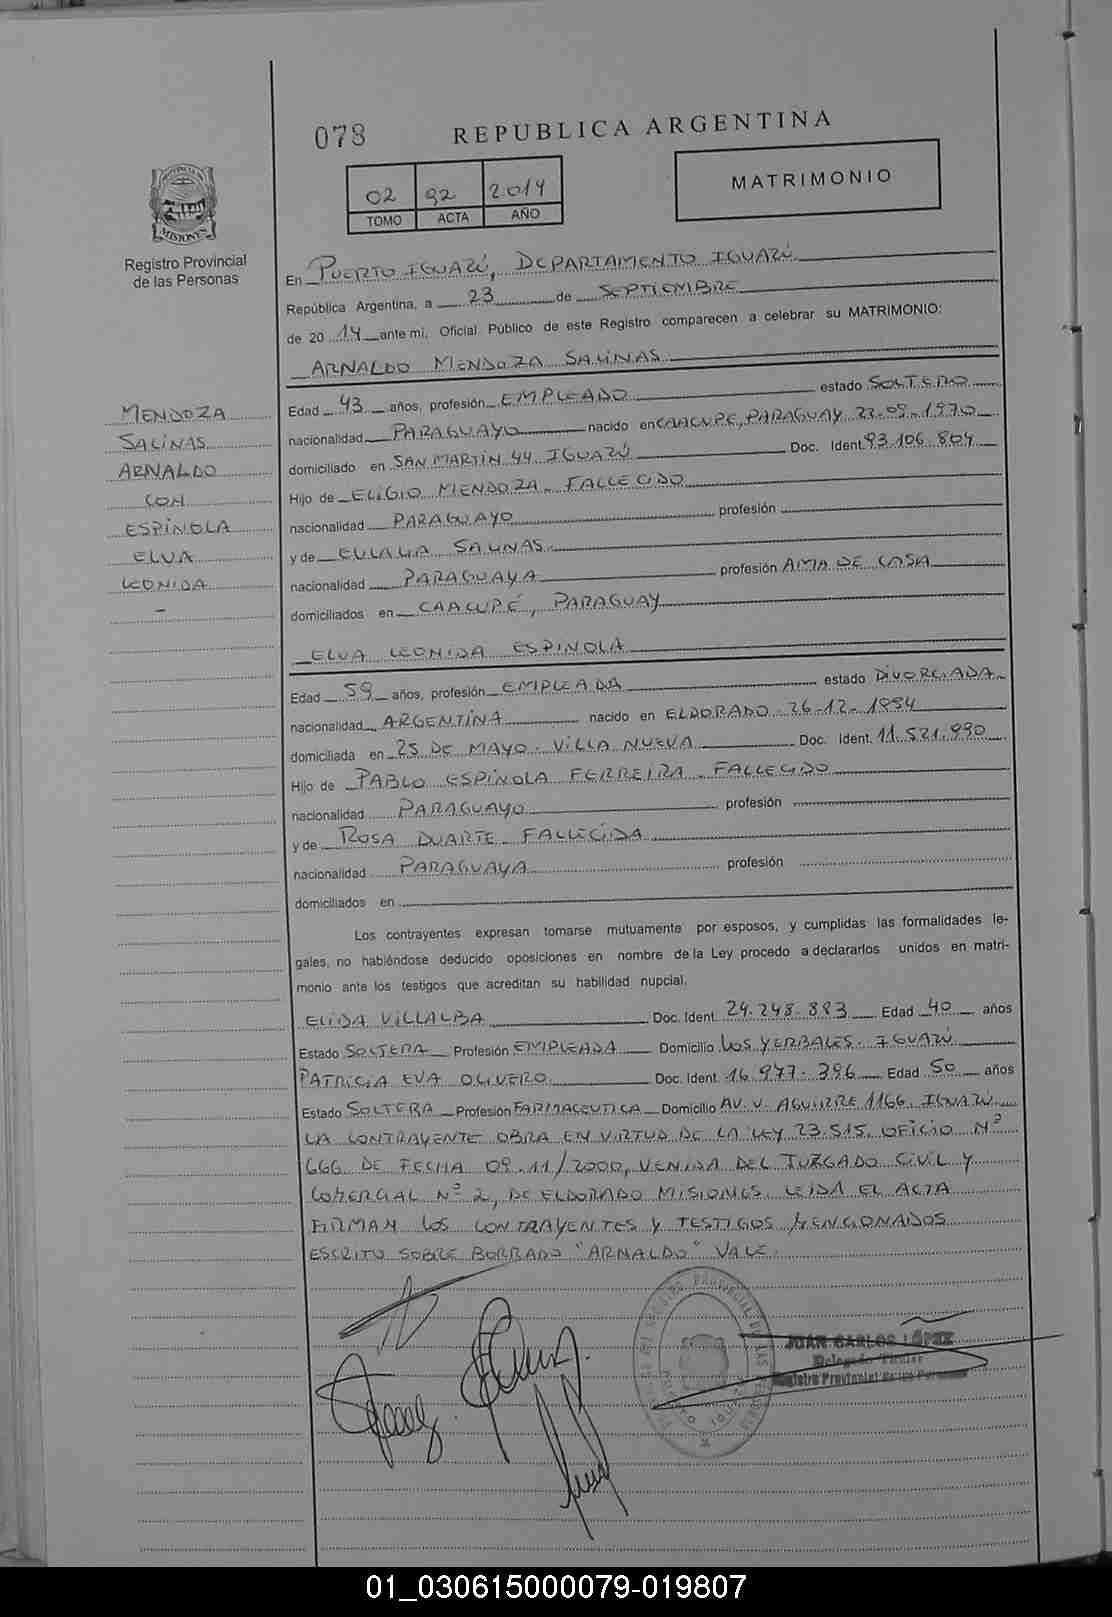 078
REPUBLICA ARGENTINA
MATRIMONIO
02 92 2014
TOMO ACTA AÑO
MISIONES
Registro Provincial
de las Personas
En PUERTO IGUAZÚ, DEPARTAMENTO IGUAZÚ
República Argentina, a 23 de SEPTIEMBRE
de 20 14 ante mi, Oficial Público de este Registro comparecen a celebrar su MATRIMONIO:
ARNALDO MENDOZA SALINAS
MENDOZA
SALINAS
ARNALDO
CON
ESPÍNOLA
ELVA
LEONIDA
Edad 43 años, profesión EMPLEADO estado SOLTERO
nacionalidad PARAGUAYO nacido en CAACUPE, PARAGUAY 23-09-1970
domiciliado en SAN MARTÍN 44 IGUAZÚ Doc. Ident. 93.106.804
Hijo de ELIGIO MENDOZA - FALLECIDO
nacionalidad PARAGUAYO profesión
y de EULALIA SALINAS
nacionalidad PARAGUAYA profesión AMA DE CASA
domiciliados en CAACUPÉ, PARAGUAY
ELVA LEONIDA ESPINOLA
Edad 59 años, profesión EMPLEADA estado DIVORCIADA
nacionalidad ARGENTINA nacido en ELDORADO - 26-12-1954
domiciliada en 25 DE MAYO - VILLA NUEVA Doc. Ident. 11.521.990
Hijo de PABLO ESPÍNOLA FERREIRA - FALLECIDO
nacionalidad PARAGUAYO profesión
y de ROSA DUARTE - FALLECIDA
nacionalidad PARAGUAYA profesión
domiciliados en
Los contrayentes expresan tomarse mutuamente por esposos, y cumplidas las formalidades le-
gales, no habiéndose deducido oposiciones en nombre de la Ley procedo a declararlos unidos en matri-
monio ante los testigos que acreditan su habilidad nupcial,
ELIDA VILLALBA Doc. Ident. 24.248.883 Edad 40 años
Estado SOLTERA Profesión EMPLEADA Domicilio LOS YERBALES - IGUAZÚ
PATRICIA EVA OLIVERO Doc. Ident. 16.977.396 Edad 50 años
Estado SOLTERA Profesión FARMACEUTICA Domicilio AV. V. AGUIRRE 1166. IGUAZÚ
LA CONTRAYENTE OBRA EN VIRTUD DE LA LEY 23.515, OFICIO Nº
666 DE FECHA 09-11/2000, VENIDA DEL JUZGADO CIVIL Y
COMERCIAL Nº 2, DE ELDORADO MISIONES. LEIDA EL ACTA
FIRMAN LOS CONTRAYENTES Y TESTIGOS MENCIONADOS
ESCRITO SOBRE BORRADO "ARNALDO" VALE.
JUAN CARLOS LÓPEZ
Delegado Titular
Registro Provincial de las Personas
01_030615000079-019807